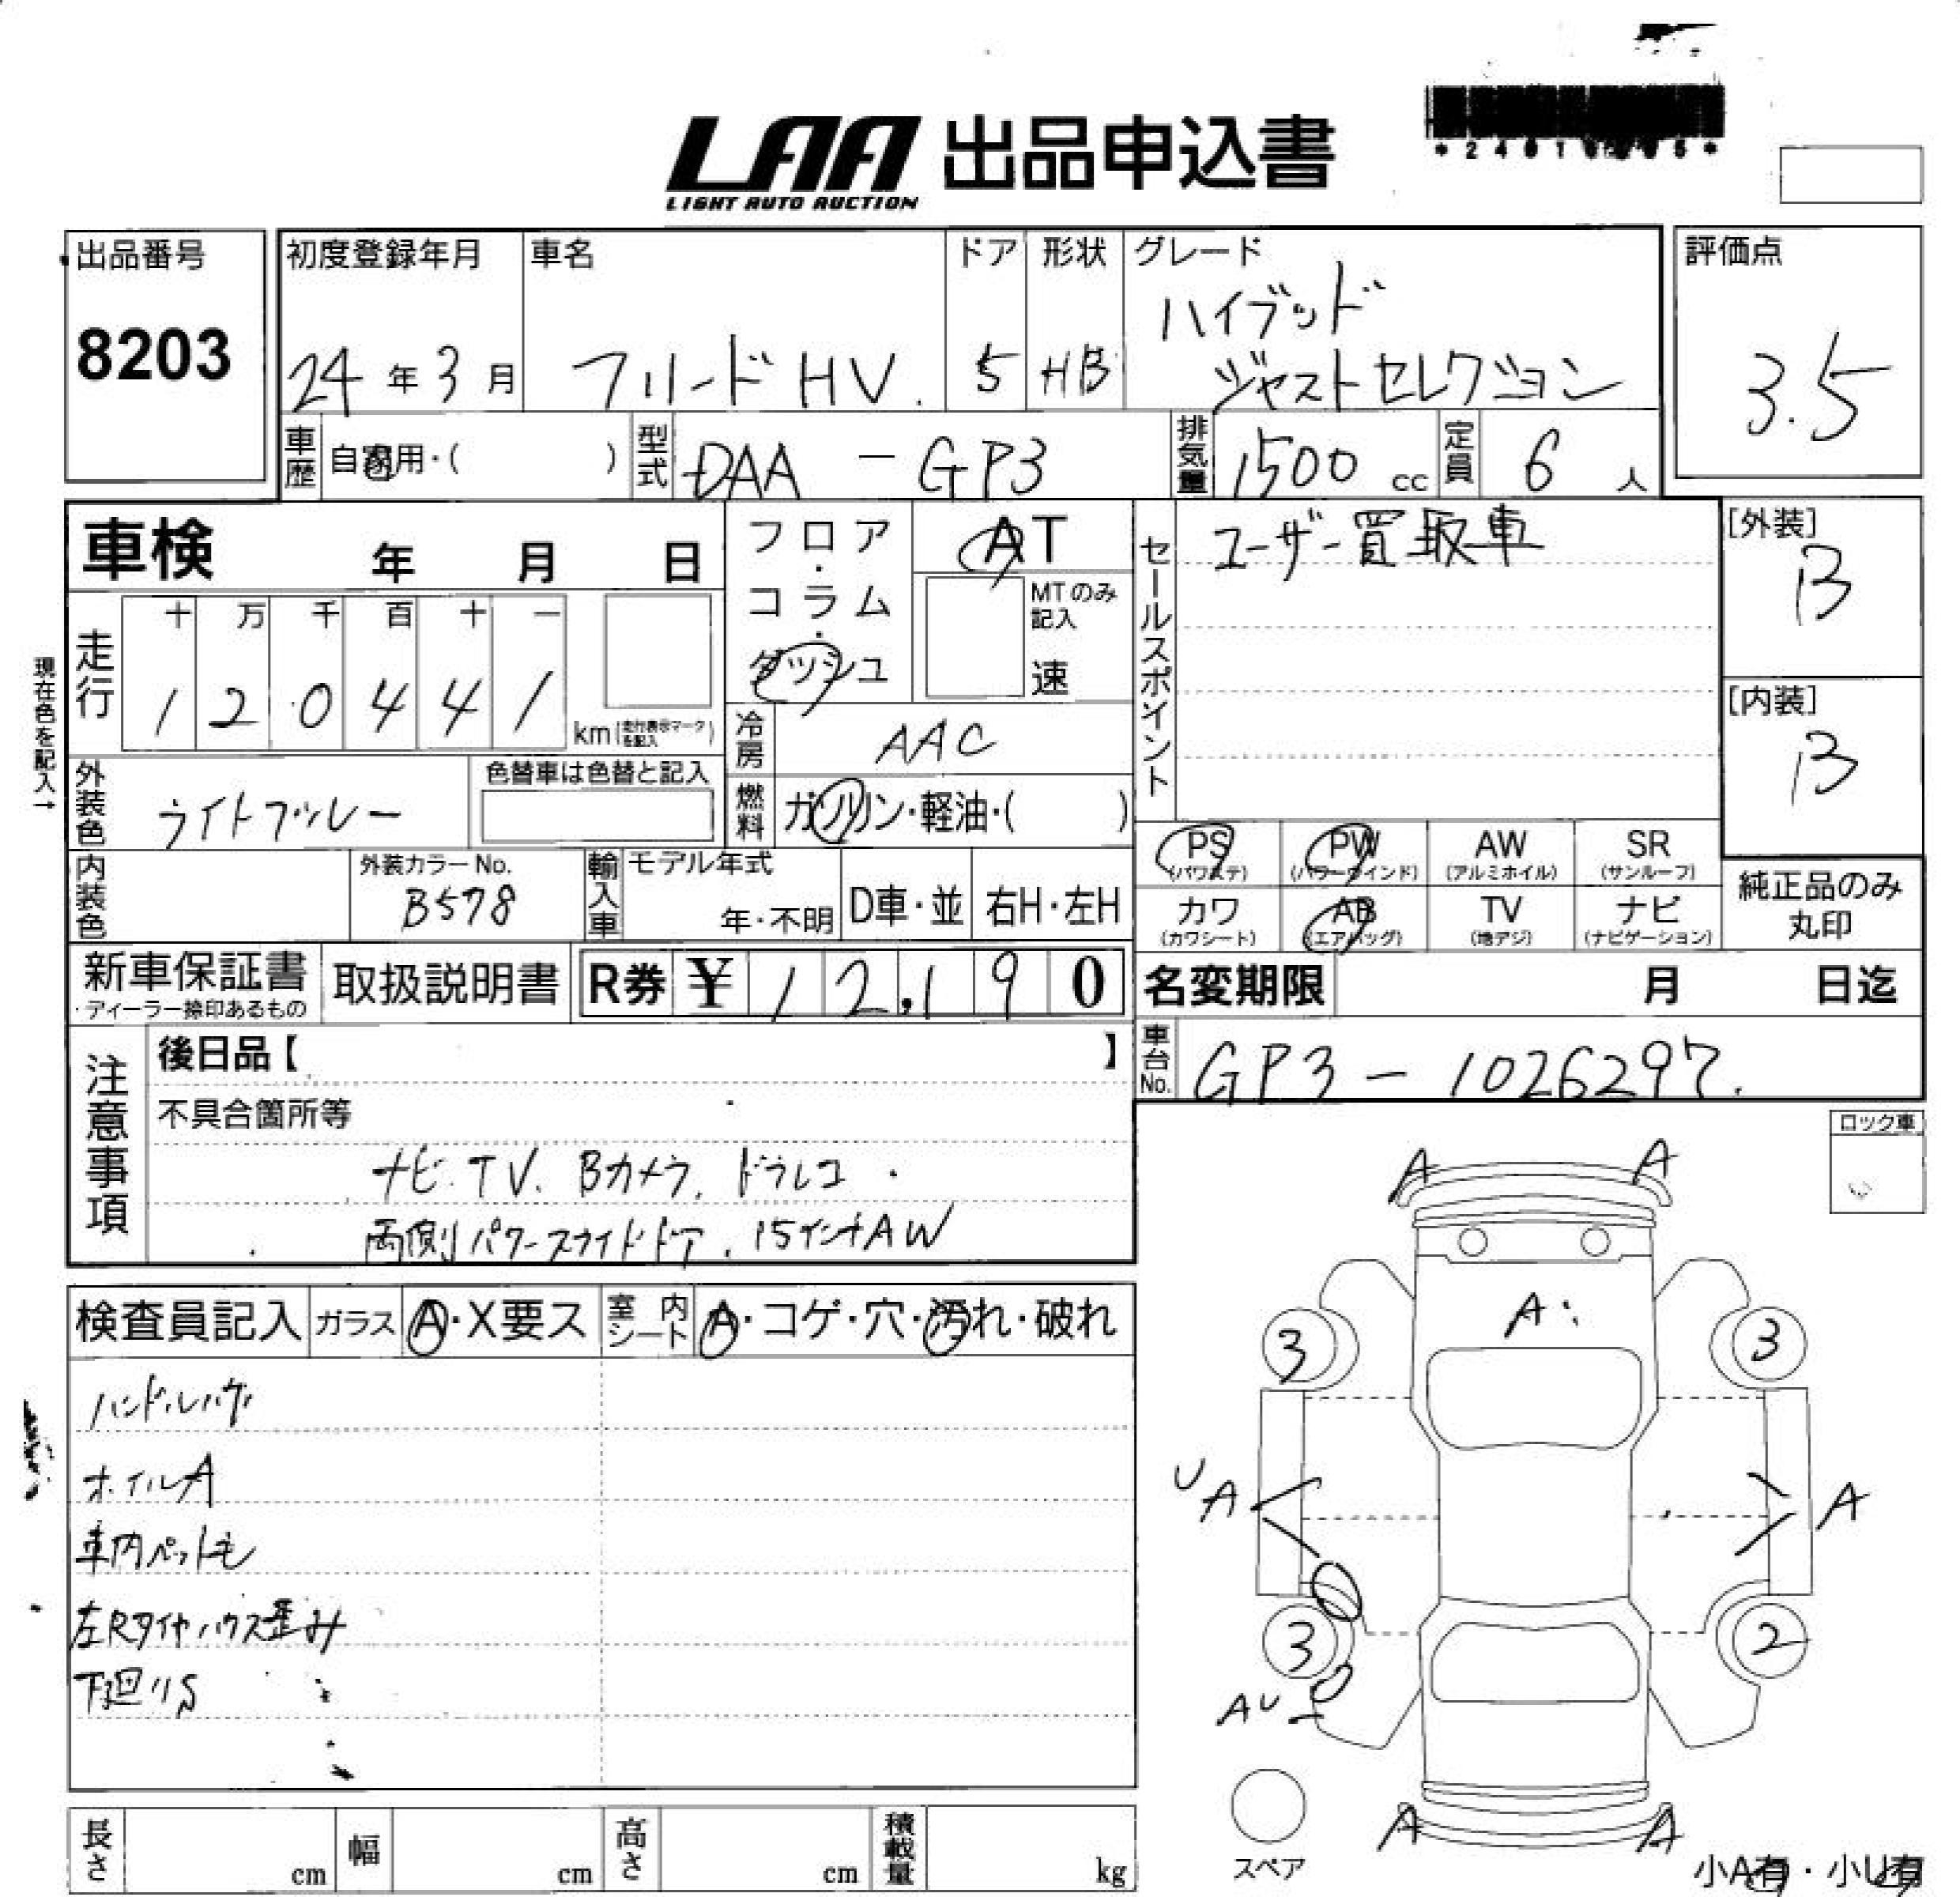 *2401
LAA 出品申込書
LIGHT AUTO AUCTION
出品番号
8203
初度登録年月
24年3月
車名
フリードHV.
ドア
5
形状
HB
グレード
ハイブッド
ジャストセレクション
評価点
3.5
車歴 自家用・( )
型式 DAA - GP3
排気量 1500 cc
定員 6 人
車検 年 月 日
フロア・コラム・ダッシュ
AT
MTのみ記入
速
セールスポイント
ユーザー買取車
[外装]
B
[内装]
B
現在色を記入→
走行
十 万 千 百 十 一
1 2 0 4 4 1 km(走行表示マークを記入)
冷房 AAC
燃料 ガソリン・軽油・( )
外装色 ライトブルー
色替車は色替と記入
内装色
外装カラーNo.
B578
輸入車
モデル年式
年・不明
D車・並
右H・左H
PS (パワステ)
PW (パワーウインド)
AW (アルミホイル)
SR (サンルーフ)
カワ (カワシート)
AB (エアバッグ)
TV (地デジ)
ナビ (ナビゲーション)
純正品のみ
丸印
新車保証書
・ディーラー捺印あるもの
取扱説明書
R券 ¥ 12,190
名変期限 月 日迄
車台No. GP3 - 1026297.
注意事項
後日品【 】
不具合箇所等
ナビ.TV. Bカメラ. ドラレコ.
両側パワースライドドア. 15インチAW
ロック車
検査員記入
ガラス A・X要ス
室内シート A・コゲ・穴・汚れ・破れ
ハンドルハゲ
ホイルA
車内ペット毛
左Rタイヤハウス歪み
下廻りS
A A
A
3 3
U
A A
3 2
AU
A A
スペア
小A有・小U有
長さ cm
幅 cm
高さ cm
積載量 kg